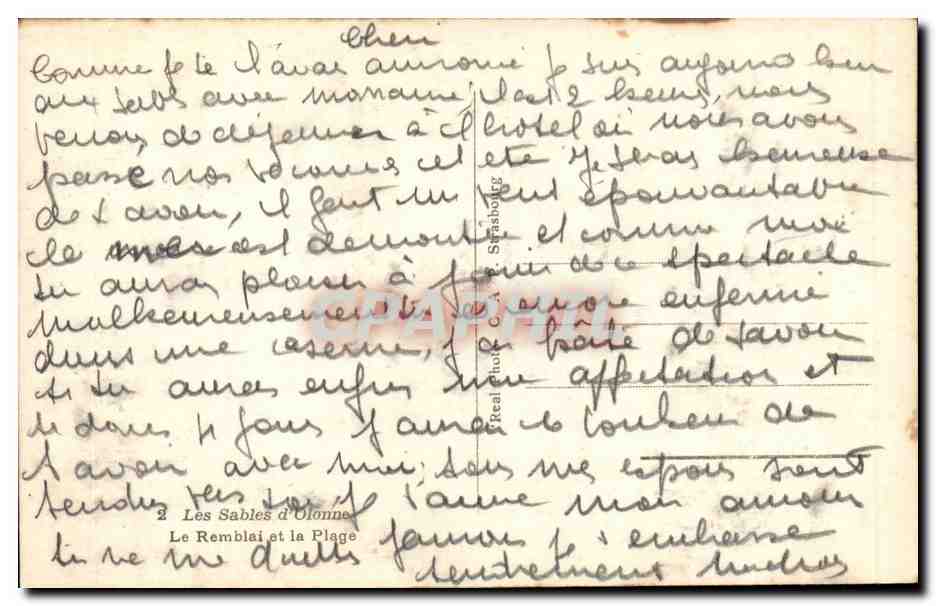 Cheri
Comme je te l'avais annoncé je suis aujourd'hui
aux Sables avec maman, il est 2 heures, nous
venons de déjeuner à l'hotel où nous avons
passé nos vacances cet été Je serais heureuse
de t'avoir, il fait un vent épouvantable
la mer est demontée et comme moi
tu aurais plaisir à jouir de ce spectacle
malheureusement tu es encore enfermé
dans une caserne, j'ai hâte de savoir
si tu auras enfin une affectation et
si dans jours j'aurai le bonheur de
t'avoir avec moi, tous mes espoirs sont
tendus vers toi je t'aime mon amour
tu ne me quittes jamais je t'embrasse
tendrement
2 Les Sables d'Olonne
Le Remblai et la Plage
Real Photo C. A. P. Strasbourg
CPAPHIL